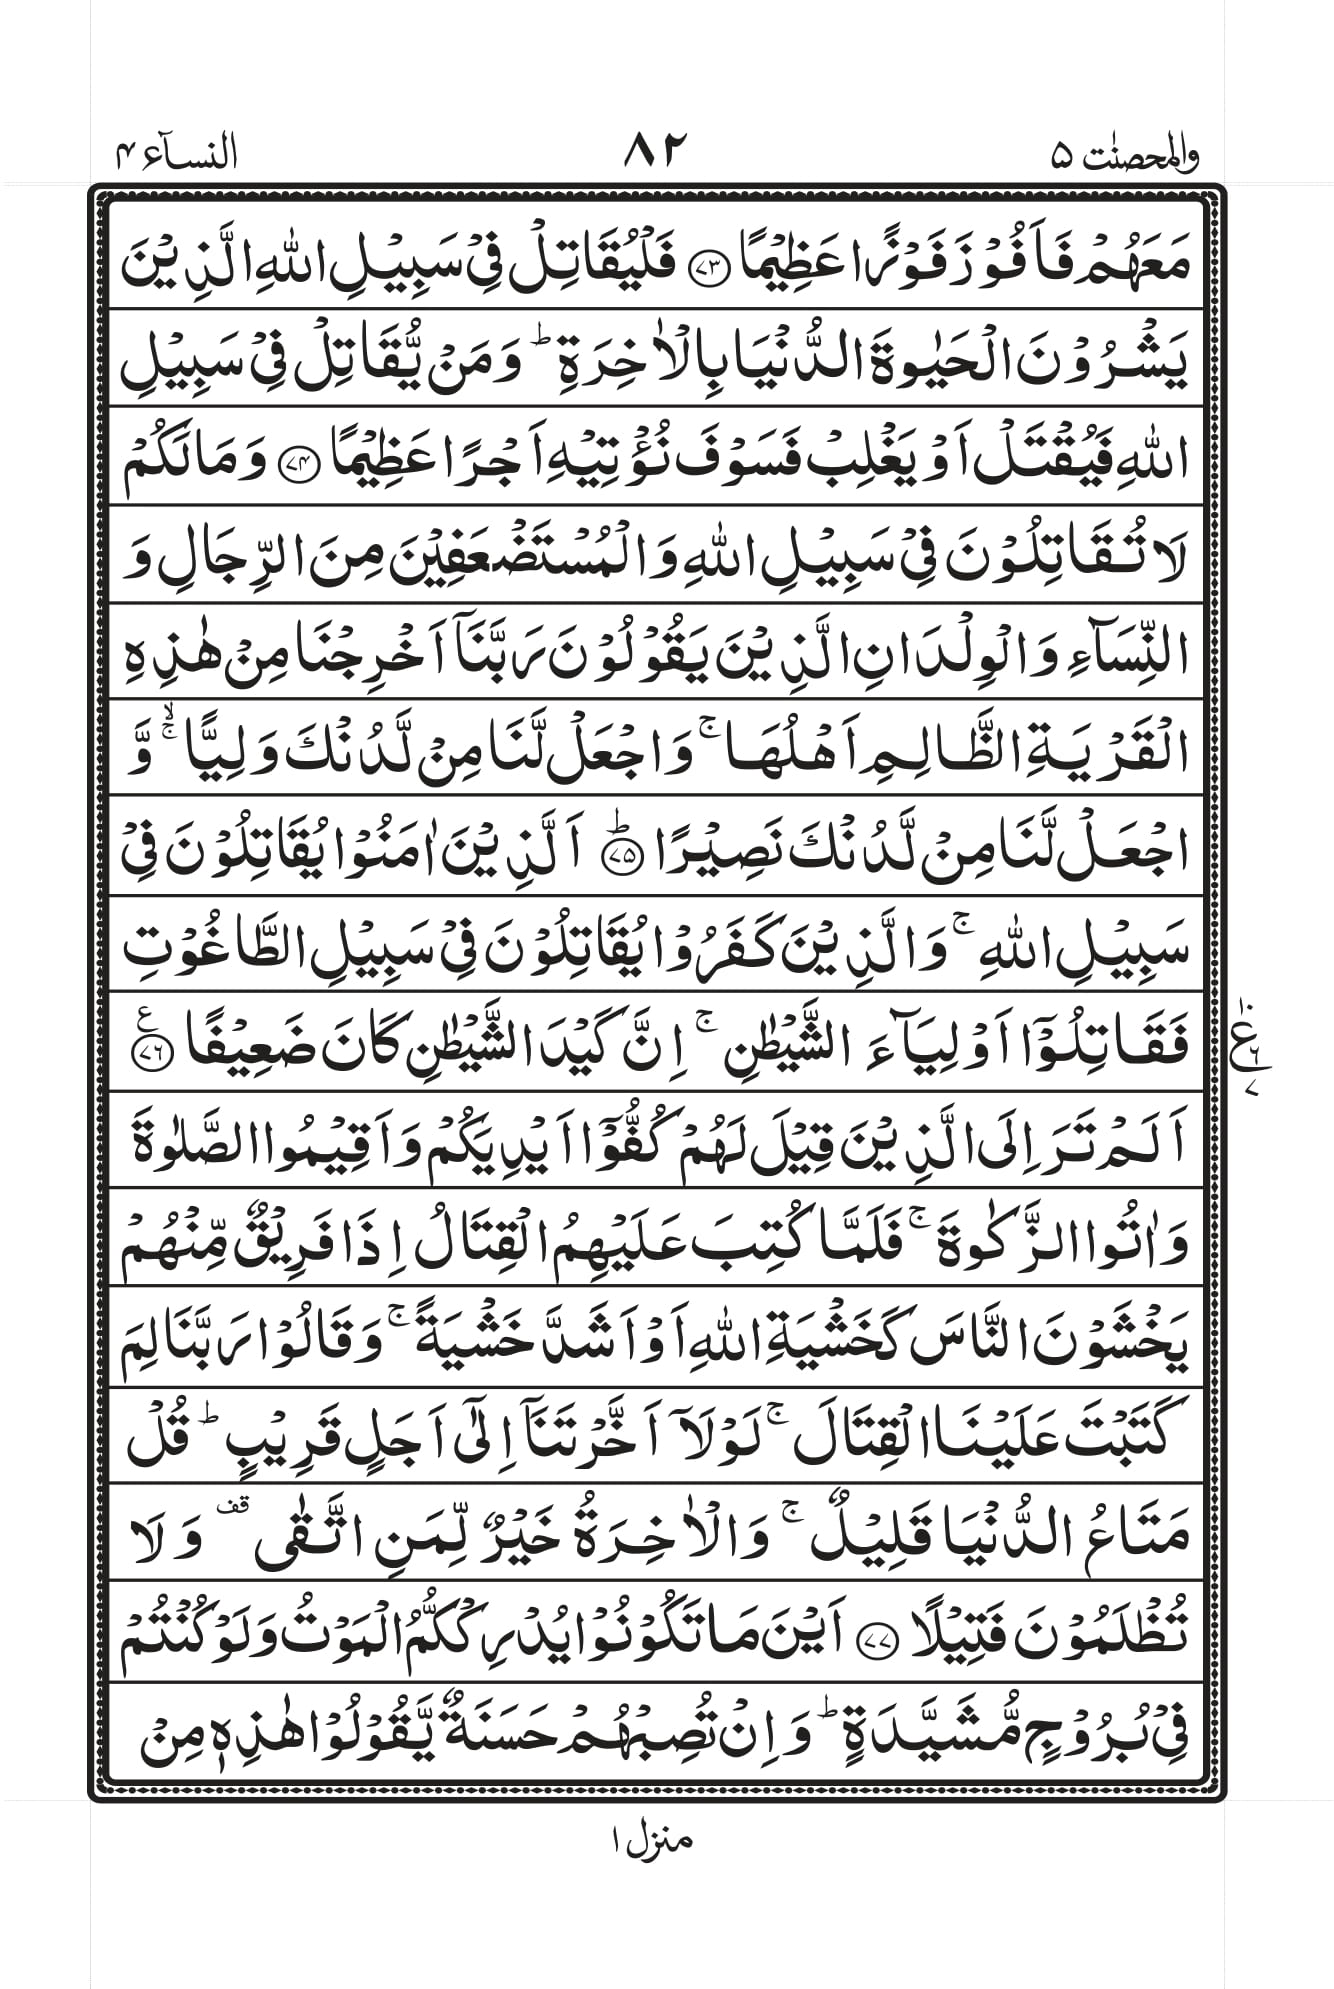 والمحصنٰت ٥
٨٢
النسآء ٤
مَعَهُمْ فَاَفُوْزَ فَوْزًا عَظِيْمًا ﴿٧٣﴾ فَلْيُقَاتِلْ فِيْ سَبِيْلِ اللّٰهِ الَّذِيْنَ
يَشْرُوْنَ الْحَيٰوةَ الدُّنْيَا بِالْاٰخِرَةِ ؕ وَمَنْ يُّقَاتِلْ فِيْ سَبِيْلِ
اللّٰهِ فَيُقْتَلْ اَوْ يَغْلِبْ فَسَوْفَ نُؤْتِيْهِ اَجْرًا عَظِيْمًا ﴿٧٤﴾ وَمَا لَكُمْ
لَا تُقَاتِلُوْنَ فِيْ سَبِيْلِ اللّٰهِ وَالْمُسْتَضْعَفِيْنَ مِنَ الرِّجَالِ وَ
النِّسَآءِ وَالْوِلْدَانِ الَّذِيْنَ يَقُوْلُوْنَ رَبَّنَآ اَخْرِجْنَا مِنْ هٰذِهِ
الْقَرْيَةِ الظَّالِمِ اَهْلُهَا ۚ وَاجْعَلْ لَّنَا مِنْ لَّدُنْكَ وَلِيًّا ۚۙ وَّ
اجْعَلْ لَّنَا مِنْ لَّدُنْكَ نَصِيْرًا ﴿٧٥﴾ؕ اَلَّذِيْنَ اٰمَنُوْا يُقَاتِلُوْنَ فِيْ
سَبِيْلِ اللّٰهِ ۚ وَالَّذِيْنَ كَفَرُوْا يُقَاتِلُوْنَ فِيْ سَبِيْلِ الطَّاغُوْتِ
فَقَاتِلُوْٓا اَوْلِيَآءَ الشَّيْطٰنِ ۚ اِنَّ كَيْدَ الشَّيْطٰنِ كَانَ ضَعِيْفًا ﴿٧٦﴾ ع
ع ٦ ٧
اَلَمْ تَرَ اِلَى الَّذِيْنَ قِيْلَ لَهُمْ كُفُّوْٓا اَيْدِيَكُمْ وَاَقِيْمُوا الصَّلٰوةَ
وَاٰتُوا الزَّكٰوةَ ۚ فَلَمَّا كُتِبَ عَلَيْهِمُ الْقِتَالُ اِذَا فَرِيْقٌ مِّنْهُمْ
يَخْشَوْنَ النَّاسَ كَخَشْيَةِ اللّٰهِ اَوْ اَشَدَّ خَشْيَةً ۚ وَقَالُوْا رَبَّنَا لِمَ
كَتَبْتَ عَلَيْنَا الْقِتَالَ ۚ لَوْلَآ اَخَّرْتَنَآ اِلٰٓى اَجَلٍ قَرِيْبٍ ؕ قُلْ
مَتَاعُ الدُّنْيَا قَلِيْلٌ ۚ وَالْاٰخِرَةُ خَيْرٌ لِّمَنِ اتَّقٰى قف وَلَا
تُظْلَمُوْنَ فَتِيْلًا ﴿٧٧﴾ اَيْنَ مَا تَكُوْنُوْا يُدْرِكْكُّمُ الْمَوْتُ وَلَوْ كُنْتُمْ
فِيْ بُرُوْجٍ مُّشَيَّدَةٍ ؕ وَاِنْ تُصِبْهُمْ حَسَنَةٌ يَّقُوْلُوْا هٰذِهٖ مِنْ
منزل ١